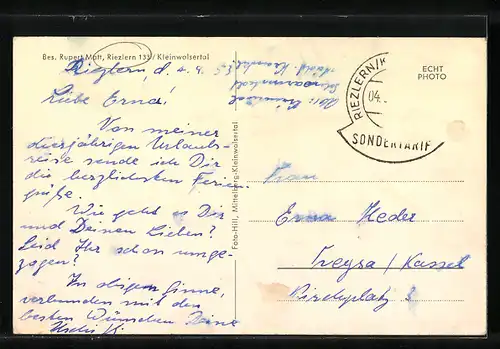 Bes. Rupert Mott, Riezlern 135 / Kleinwalsertal
Riezlern, d. 2. 9. 55
Liebe Erna!
Von meiner
diesjährigen Urlaubs-
reise sende ich Dir
die herzlichsten Ferien-
grüße.
Wie geht es Dir
und Deinen Lieben?
Seid Ihr schon umge-
zogen?
In obigem Sinne,
verbunden mit den
besten Wünschen Deine
Foto-Hill, Mittelberg-Kleinwalsertal
ECHT
PHOTO
RIEZLERN/K
04.
SONDERTARIF
Frau
Erna Heder
Treysa / Kassel
Kirchplatz 3